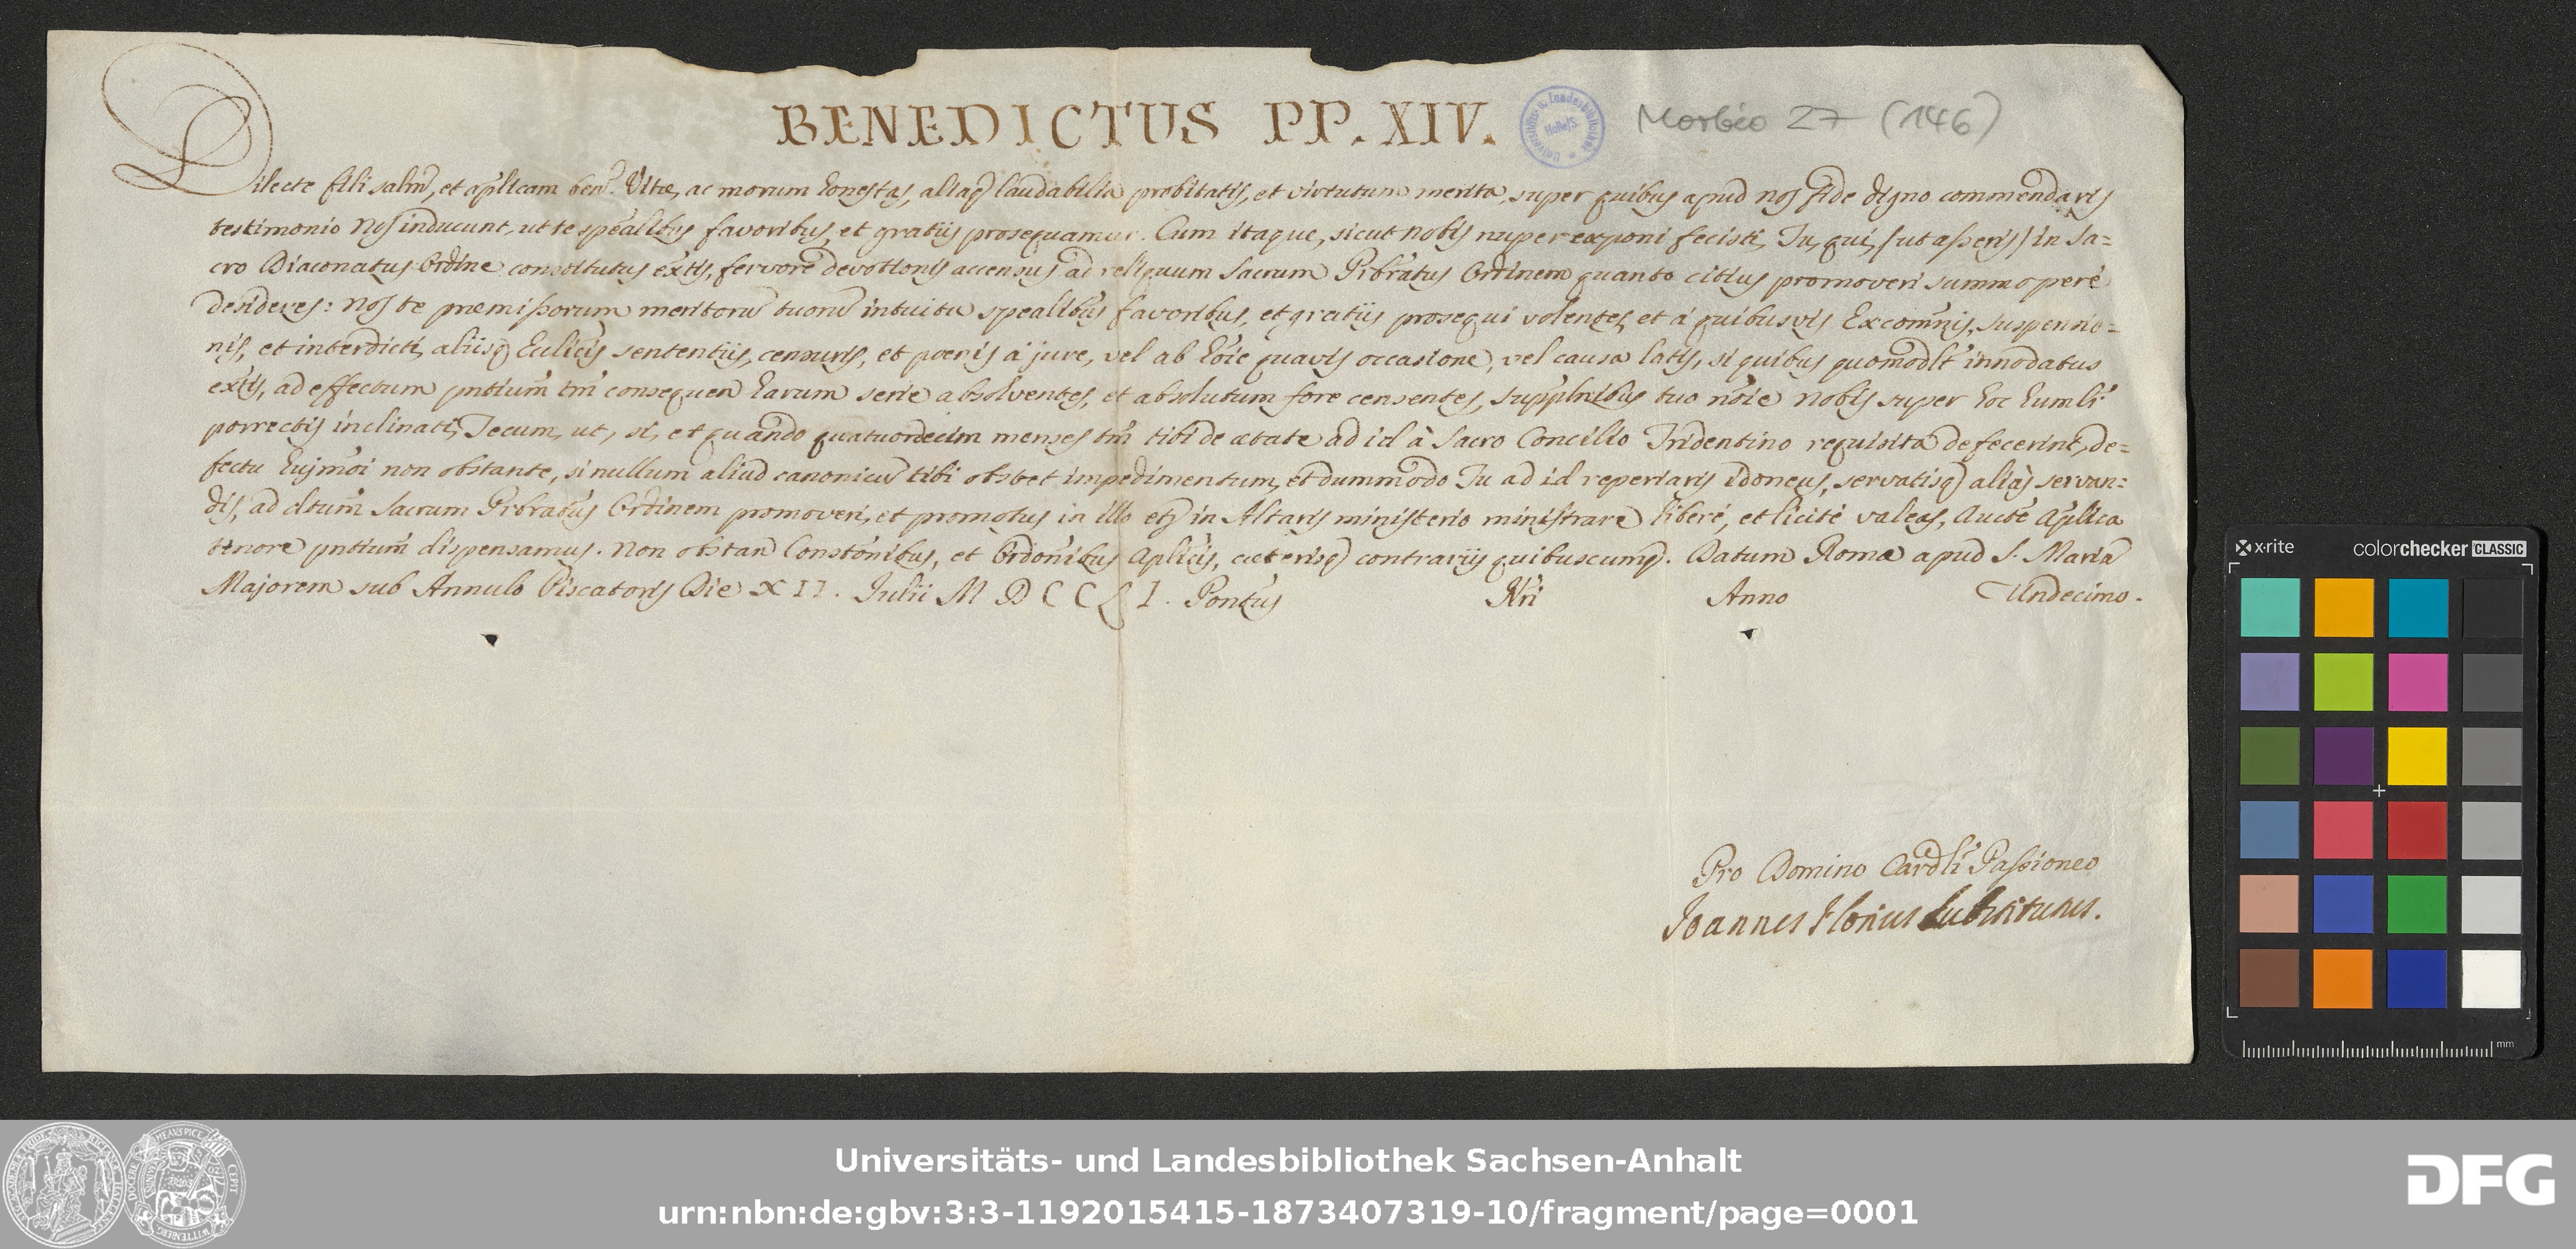 BENEDICTUS PP. XIV.
Morbio 27 (146)
Dilecte fili salm̃, et aplicam ben. Vitæ, ac morum honestas, aliaq laudabilia probitatis, et virtutum merita, super quibus apud nos fide digno commendaris
testimonio Nos inducunt, ut te spealibus favoribus, et gratiis prosequamur. Cum itaque, sicut nobis nuper exponi fecisti, Tu, qui, (ut asseris) in Sa=
cro Diaconatus Ordine constitutus extis, fervore devotionis accensus ad reliquum Sacrum Prbratus Ordinem quanto citius promoveri summopere
desideres: Nos te præmissorum meritorũ tuorũ intuitu spealibus favoribus, et gratiis prosequi volentes, et à quibusvis Excom̃nis, suspensio=
nis, et interdicti, aliisq Ecclicis sententiis, censuris, et poenis à jure, vel ab hoĩe quavis occasione, vel causa latis, si quibus quomodlt innodatus
extis, ad effectum pntium̃ tm̃ consequen harum serie absolventes, et absolutum fore censentes, supplnibus tuo nõie Nobis super hoc humlr
porrectis inclinati, Tecum, ut, si, et quando quatuordecim menses tm̃ tibi de ætate ad id à Sacro Concilio Tridentino requisita defecerint, de=
fectu hujmõi non obstante, si nullum aliud canonicũ tibi obstet impedimentum, et dummodo Tu ad id reperiaris idoneus, servatisq aliàs servan=
dis, ad dtum̃ Sacrum Prbratus Ordinem promoveri, et promotus in illo etq in Altaris ministerio ministrare liberè, et licitè valeas, Aucte Aplica
tenore pntium̃ dispensamus. Non obstan Constõnibus, et Ordoñibus Aplicis, cæterisq contrariis quibuscumq. Datum Romæ apud S. Mariã
Majorem sub Annulo Piscatoris Die XII. Julii MDCCLI. Pontus Nri Anno Undecimo.
Pro Domino Cardli Passioneo
Joannes Florius Substitutus.
x·rite colorchecker CLASSIC
mm
Universitäts- und Landesbibliothek Sachsen-Anhalt
urn:nbn:de:gbv:3:3-1192015415-1873407319-10/fragment/page=0001
DFG